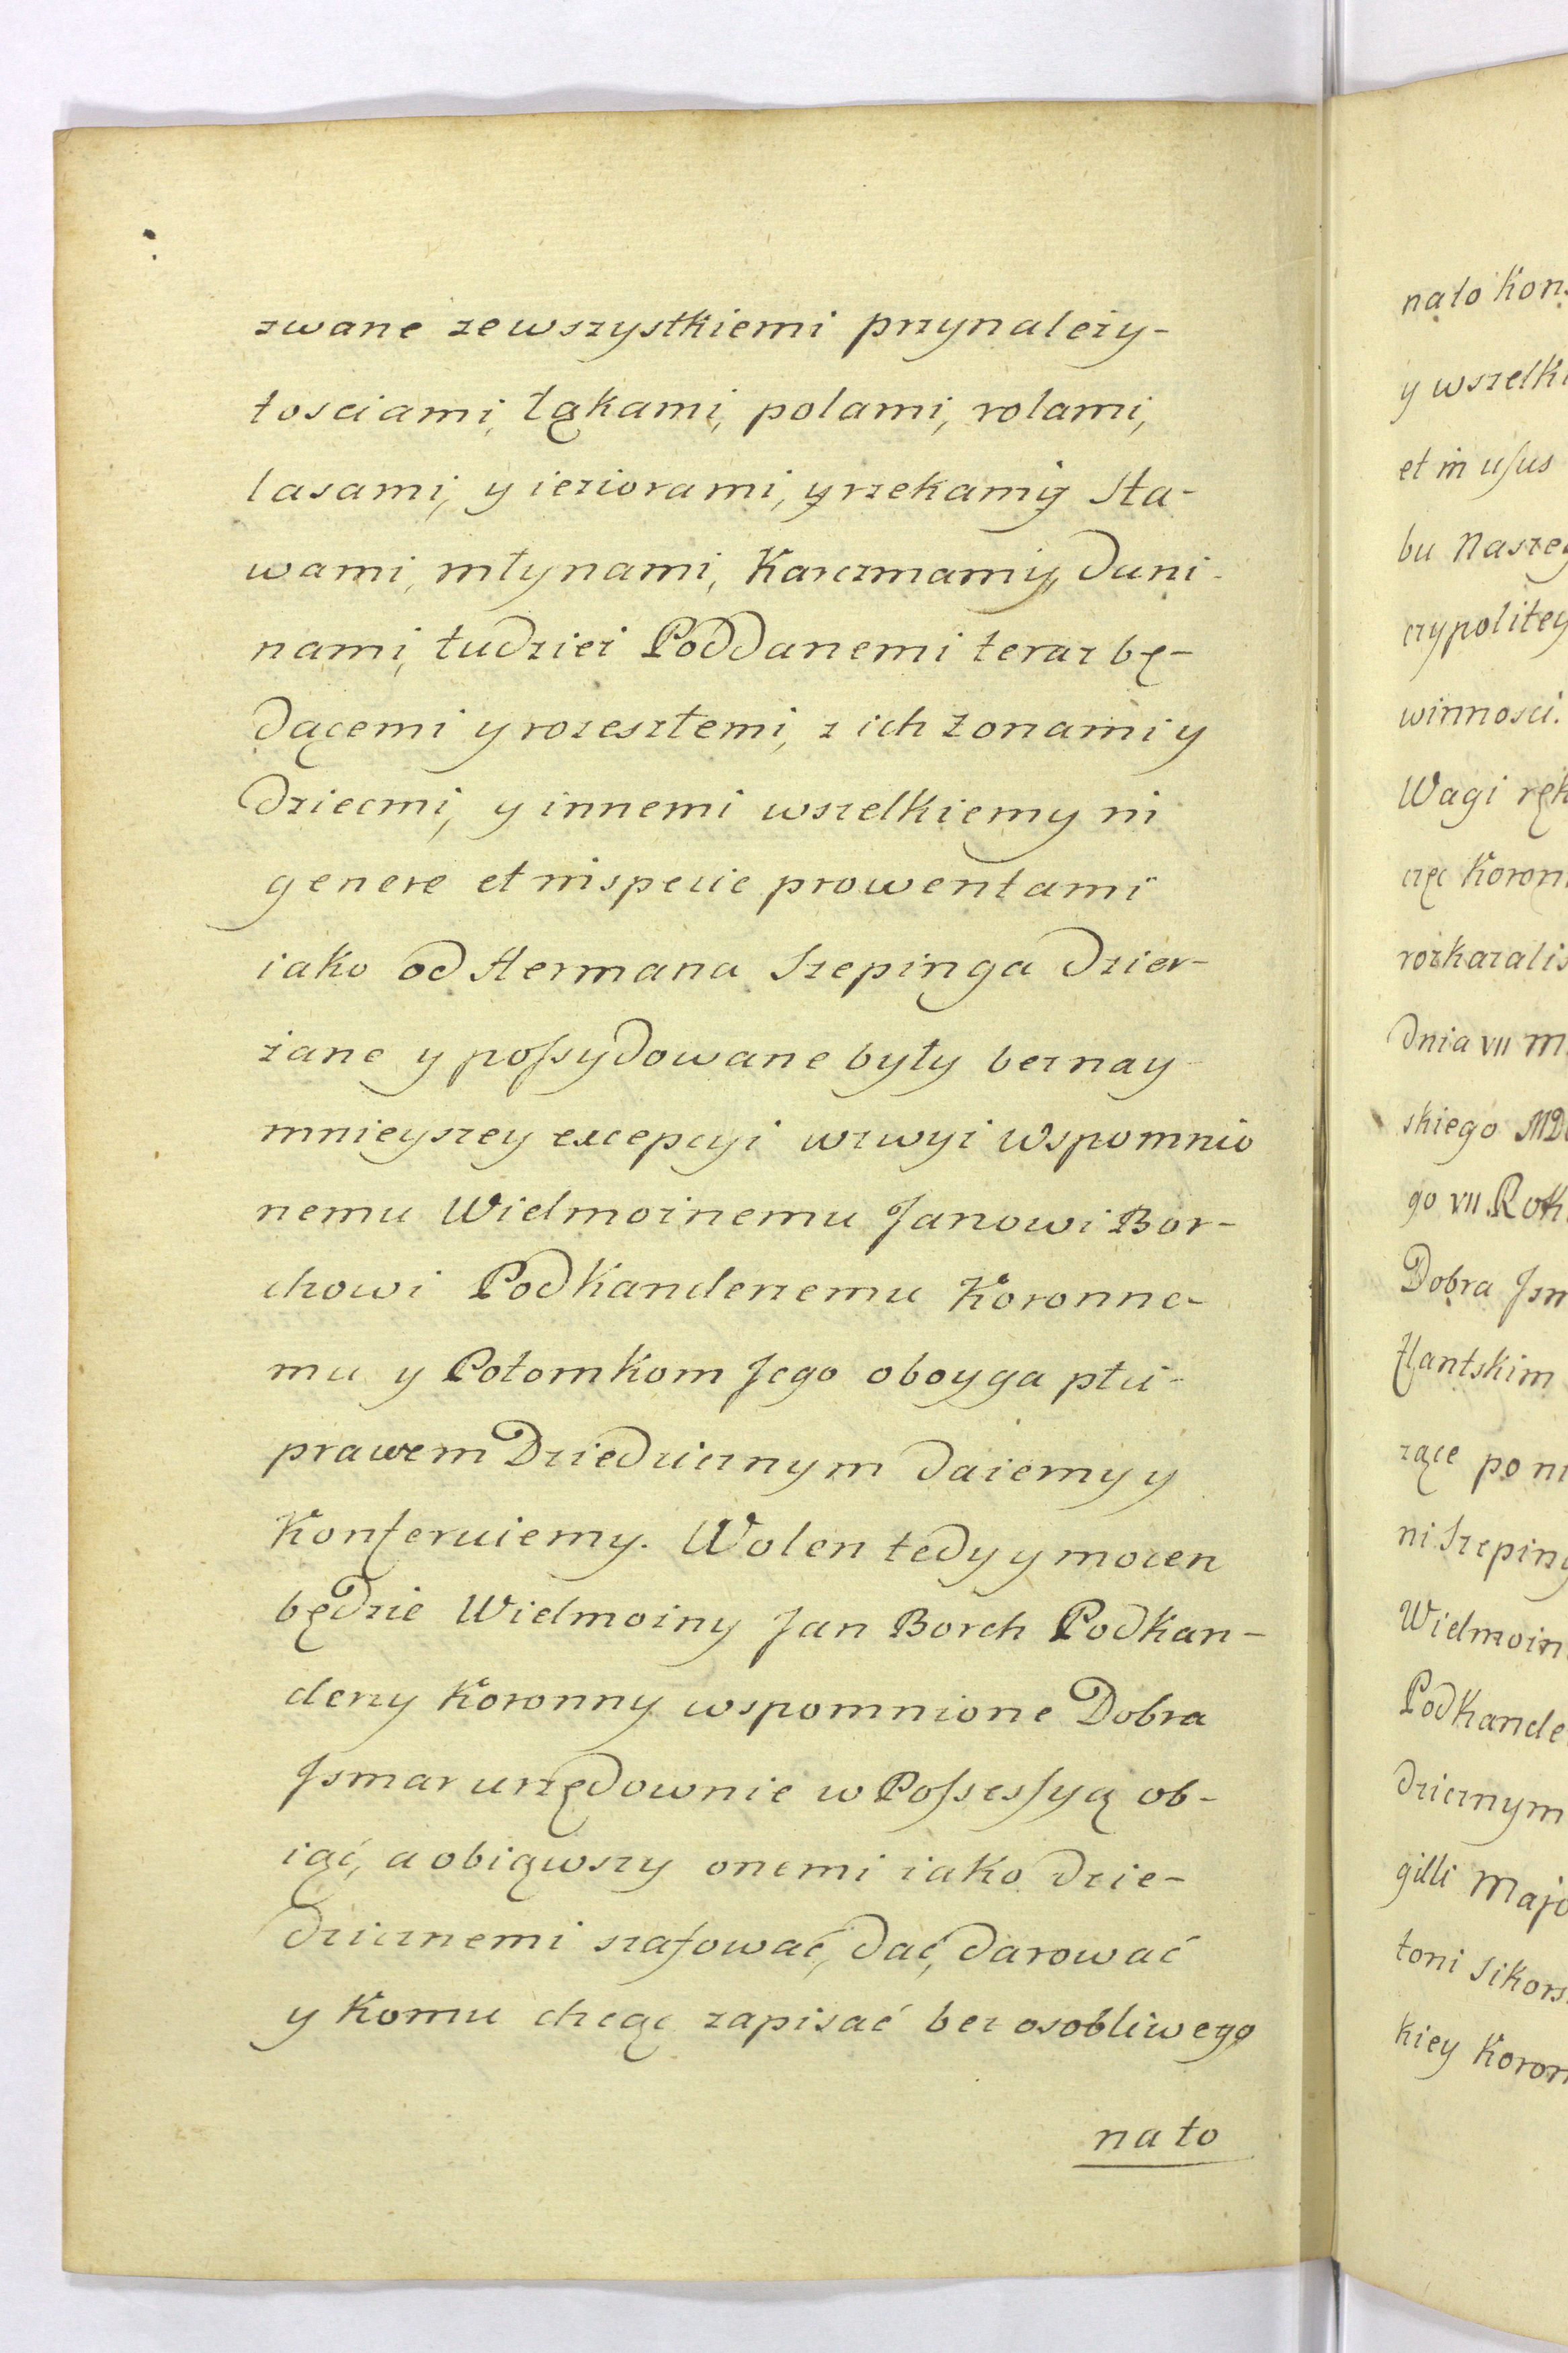 zwane zewszystkiemi przynależy-
tosciami, łąkami, polami, rolami,
lasami, y ieziorami, y rzekami y Sta-
wami, młynami, Karczmami, y Dani-
nami, tudzież Poddanemi teraz bę-
dącemi y rozeszłemi, z ich żonami y
dziecmi, y innemi wszelkiemy in
genere et in specie prowentami
iako od Hermana Szepinga dzier-
żane y possydowane były beznay
mnieyszey excepcyi wzwyż wspomnio
nemu Wielmożnemu Janowi Bor-
chowi Podkanclerzemu Koronne-
mu y Potomkom Jego oboyga płci
prawem Dziedzicznym daiemy y
Konferuiemy. Wolen tedy y mocen
będzie Wielmożny Jan Borch Podkan-
clerzy Koronny wspomnione Dobra
Jsmar urzędownie w Possessyą ob-
iąć, a obiąwszy onemi iako dzie-
dzicznemi szafować, dać, darować
y Komu chcąc zapisać bez osobliwego
na to
nato Kon
y wszelki
et in usus
bu Naszeg
czypolitey
winnosci.
Wagi ręk
częc Koron
rozkazalis
dnia VII M
skiego MD
go VII Rok
Dobra Jsm
flantskim
zące po
ni Szeping
Wielmożn
Podkancle
dzicznym
gilli Majo
toni Sikors
kiey Koron